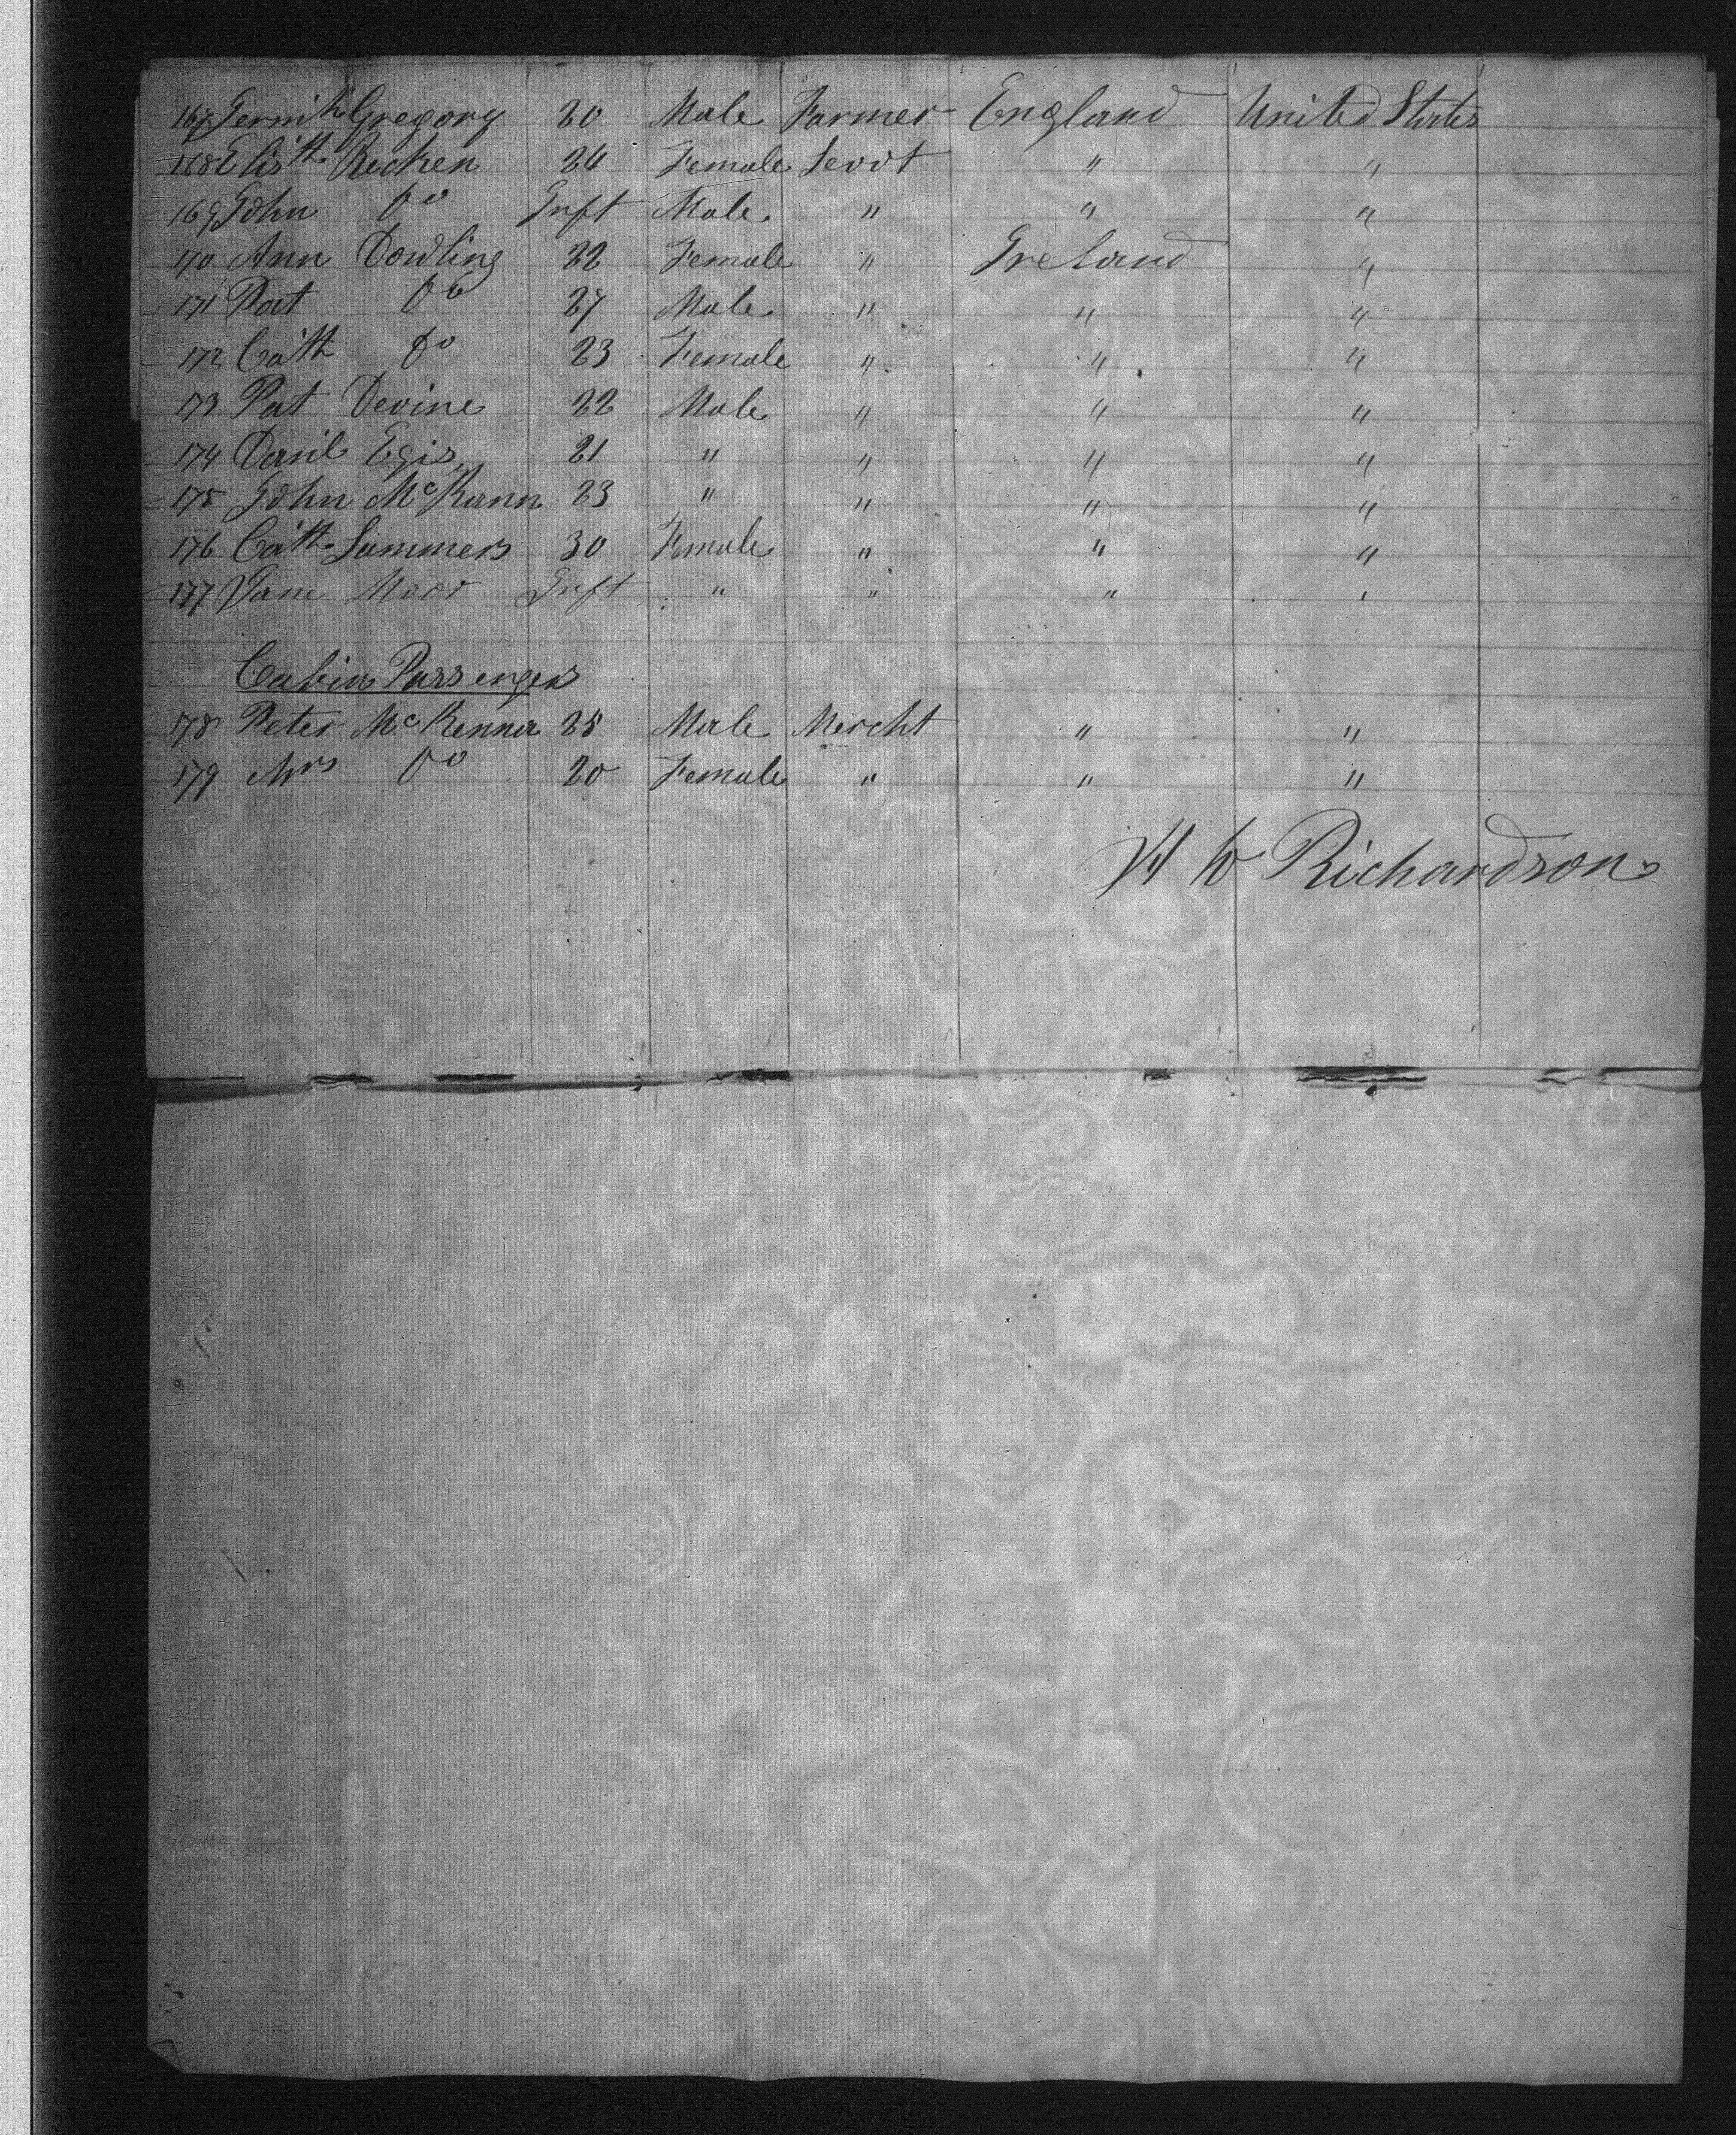 167 Jerm'h Gregory 20 Male Farmer England United States
168 Elis'th Recken 26 Female Servt " "
169 John Do Inft Male " " "
170 Ann Dowling 22 Female " Ireland "
171 Pat Do 27 Male " " "
172 Cath Do 23 Female " " "
173 Pat Devine 22 Male " " "
174 Danil Egis 21 " " " "
175 John McKann 23 " " " "
176 Cath Sommers 30 Female " " "
177 Jane Moor Inft " " " "
Cabin Passengers
178 Peter McKenna 28 Male Mercht " "
179 Mrs Do 20 Female " " "
H W Richardson